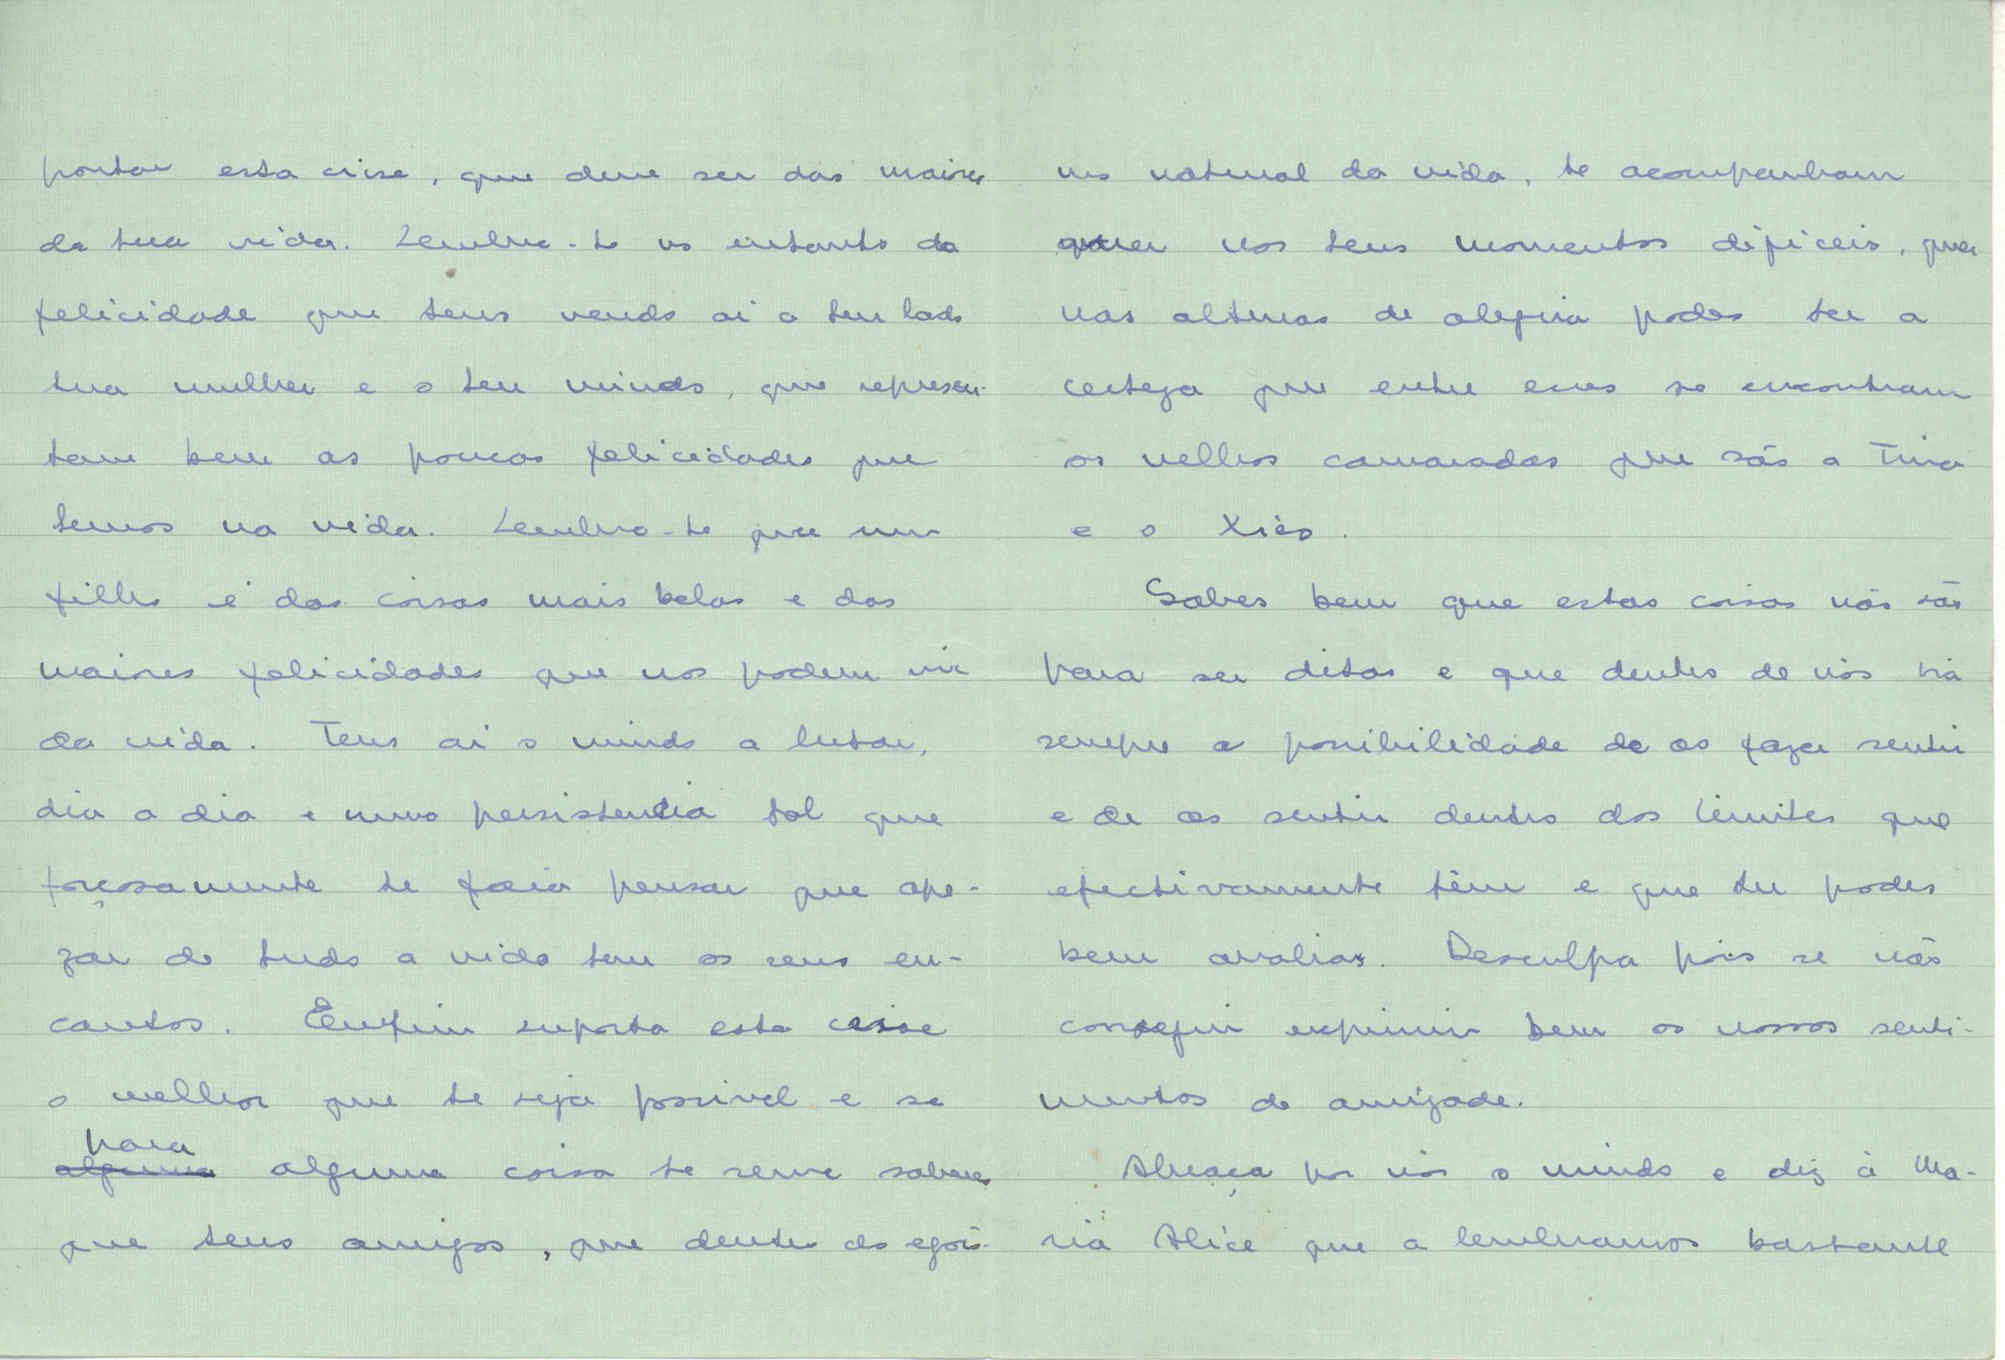 portar esta crise, que deve ser das maiores
da tua vida. Lembra-te no entanto da
felicidade que tens vendo ai a teu lado
tua mulher e o teu miudo, que represen-
tam bem as poucas felicidades que
temos na vida. Lembra-te que um
filho é das coisas mais belas e das
maiores felicidades que nos podem vir
da vida. Tens ai o miudo a lutar,
dia a dia e numa persistencia tal que
forçosamente te fará pensar que ape-
zar de tudo a vida tem os seus en-
cantos. Enfim suporta esta crise
o melhor que te seja possivel e se
para
alguma coisa te serve saberes
que tens amigos, que dentro do egois-
mo natural da vida, te acompanham
quer nos teus momentos dificeis, quer
nas alturas de alegria podes ter a
certeza que entre esses se encontram
os velhos camaradas que são a Tina
e o Xico.
Sabes bem que estas coisas não são
para ser ditas e que dentro de nós há
sempre a possibilidade de as fazer sentir
e de as sentir dentro dos limites que
efectivamente têm e que tu podes
bem avaliar. Desculpa pois se não
consegui exprimir bem os nossos senti-
mentos de amizade.
Abraça por nós o miudo e diz à Ma-
ria Alice que a lembramos bastante